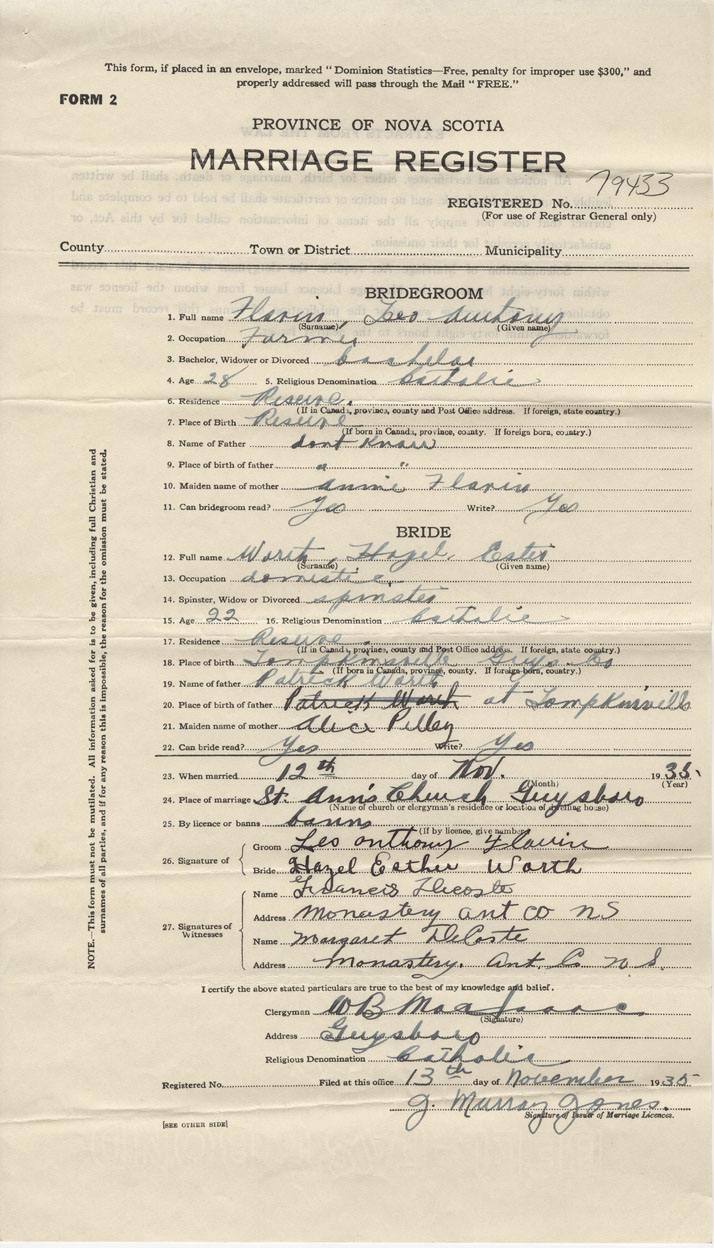 This form, if placed in an envelope, marked "Dominion Statistics—Free, penalty for improper use $300," and
properly addressed will pass through the Mail "FREE."
FORM 2
PROVINCE OF NOVA SCOTIA
MARRIAGE REGISTER
REGISTERED No. 79433
(For use of Registrar General only)
County Town or District Municipality
BRIDEGROOM
1. Full name Flavin, Leo Anthony
(Surname) (Given name)
2. Occupation Farmer
3. Bachelor, Widower or Divorced bachelor
4. Age 28 5. Religious Denomination Catholic
6. Residence Reserve.
(If in Canada, province, county and Post Office address. If foreign, state country.)
7. Place of Birth Reserve
(If born in Canada, province, county. If foreign born, country.)
8. Name of Father dont Know
9. Place of birth of father " "
10. Maiden name of mother Annie Flavin
11. Can bridegroom read? Yes Write? Yes
BRIDE
12. Full name Worth, Hazel, Ester
(Surname) (Given name)
13. Occupation domestic
14. Spinster, Widow or Divorced spinster
15. Age 22 16. Religious Denomination Catholic
17. Residence Reserve
(If in Canada, province, county and Post Office address. If foreign, state country.)
18. Place of birth Tompkinsville Guys. Co
(If born in Canada, province, county. If foreign born, country.)
19. Name of father Patrick Worth
20. Place of birth of father Patrick Worth at Tompkinsville
21. Maiden name of mother Alice Pelley
22. Can bride read? Yes Write? Yes
23. When married 12th day of Nov. 1935.
(Month) (Year)
24. Place of marriage St. Ann's Church Guysboro
(Name of church or clergyman's residence or location of dwelling house)
25. By licence or banns banns
(If by licence, give number)
26. Signature of
Groom Leo Anthony Flavin
Bride Hazel Esther Worth
27. Signatures of Witnesses
Name Francis Decoste
Address Monastery Ant Co NS
Name Margaret DeCoste
Address Monastery. Ant. Co N.S.
I certify the above stated particulars are true to the best of my knowledge and belief.
Clergyman WB MacIsaac
(Signature)
Address Guysboro
Religious Denomination Catholic
Registered No. Filed at this office 13th day of November 1935
J. Murray Jones.
Signature of Issuer of Marriage Licences.
[SEE OTHER SIDE]
NOTE.—This form must not be mutilated. All information asked for is to be given, including full Christian and
surnames of all parties, and if for any reason this is impossible, the reason for the omission must be stated.